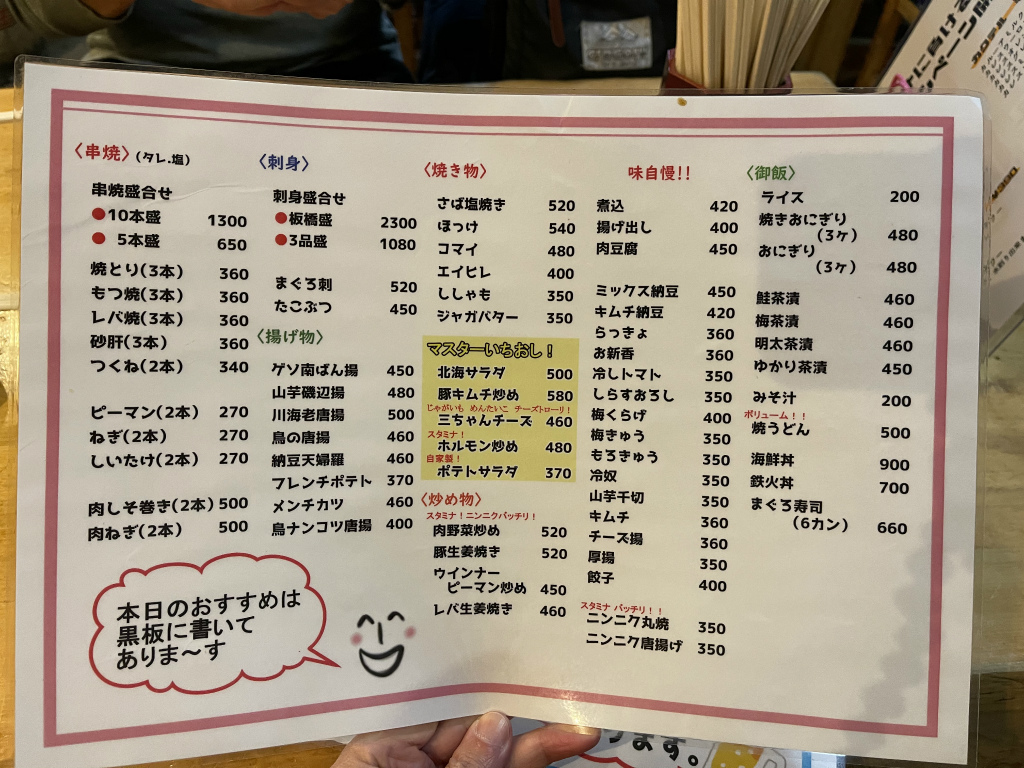 〈串焼〉(タレ.塩)
串焼盛合せ
●10本盛 1300
● 5本盛 650
焼とり(3本) 360
もつ焼(3本) 360
レバ焼(3本) 360
砂肝(3本) 360
つくね(2本) 340
ピーマン(2本) 270
ねぎ(2本) 270
しいたけ(2本) 270
肉しそ巻き(2本) 500
肉ねぎ(2本) 500
本日のおすすめは
黒板に書いて
ありま〜す
〈刺身〉
刺身盛合せ
●板橋盛 2300
●3品盛 1080
まぐろ刺 520
たこぶつ 450
〈揚げ物〉
ゲソ南ばん揚 450
山芋磯辺揚 480
川海老唐揚 500
鳥の唐揚 460
納豆天婦羅 460
フレンチポテト 370
メンチカツ 460
鳥ナンコツ唐揚 400
〈焼き物〉
さば塩焼き 520
ほっけ 540
コマイ 480
エイヒレ 400
ししゃも 350
ジャガバター 350
マスターいちおし！
北海サラダ 500
豚キムチ炒め 580
じゃがいも めんたいこ チーズトローリ！
三ちゃんチーズ 460
スタミナ！
ホルモン炒め 480
自家製！
ポテトサラダ 370
〈炒め物〉
スタミナ！ニンニクバッチリ！
肉野菜炒め 520
豚生姜焼き 520
ウインナー
ピーマン炒め 450
レバ生姜焼き 460
味自慢!!
煮込 420
揚げ出し 400
肉豆腐 450
ミックス納豆 450
キムチ納豆 420
らっきょ 360
お新香 360
冷しトマト 350
しらすおろし 350
梅くらげ 400
梅きゅう 350
もろきゅう 350
冷奴 350
山芋千切 350
キムチ 360
チーズ揚 360
厚揚 350
餃子 400
スタミナ バッチリ！！
ニンニク丸焼 350
ニンニク唐揚げ 350
〈御飯〉
ライス 200
焼きおにぎり
(3ヶ) 480
おにぎり
(3ヶ) 480
鮭茶漬 460
梅茶漬 460
明太茶漬 460
ゆかり茶漬 450
みそ汁 200
ボリューム！！
焼うどん 500
海鮮丼 900
鉄火丼 700
まぐろ寿司
(6カン) 660
ります。